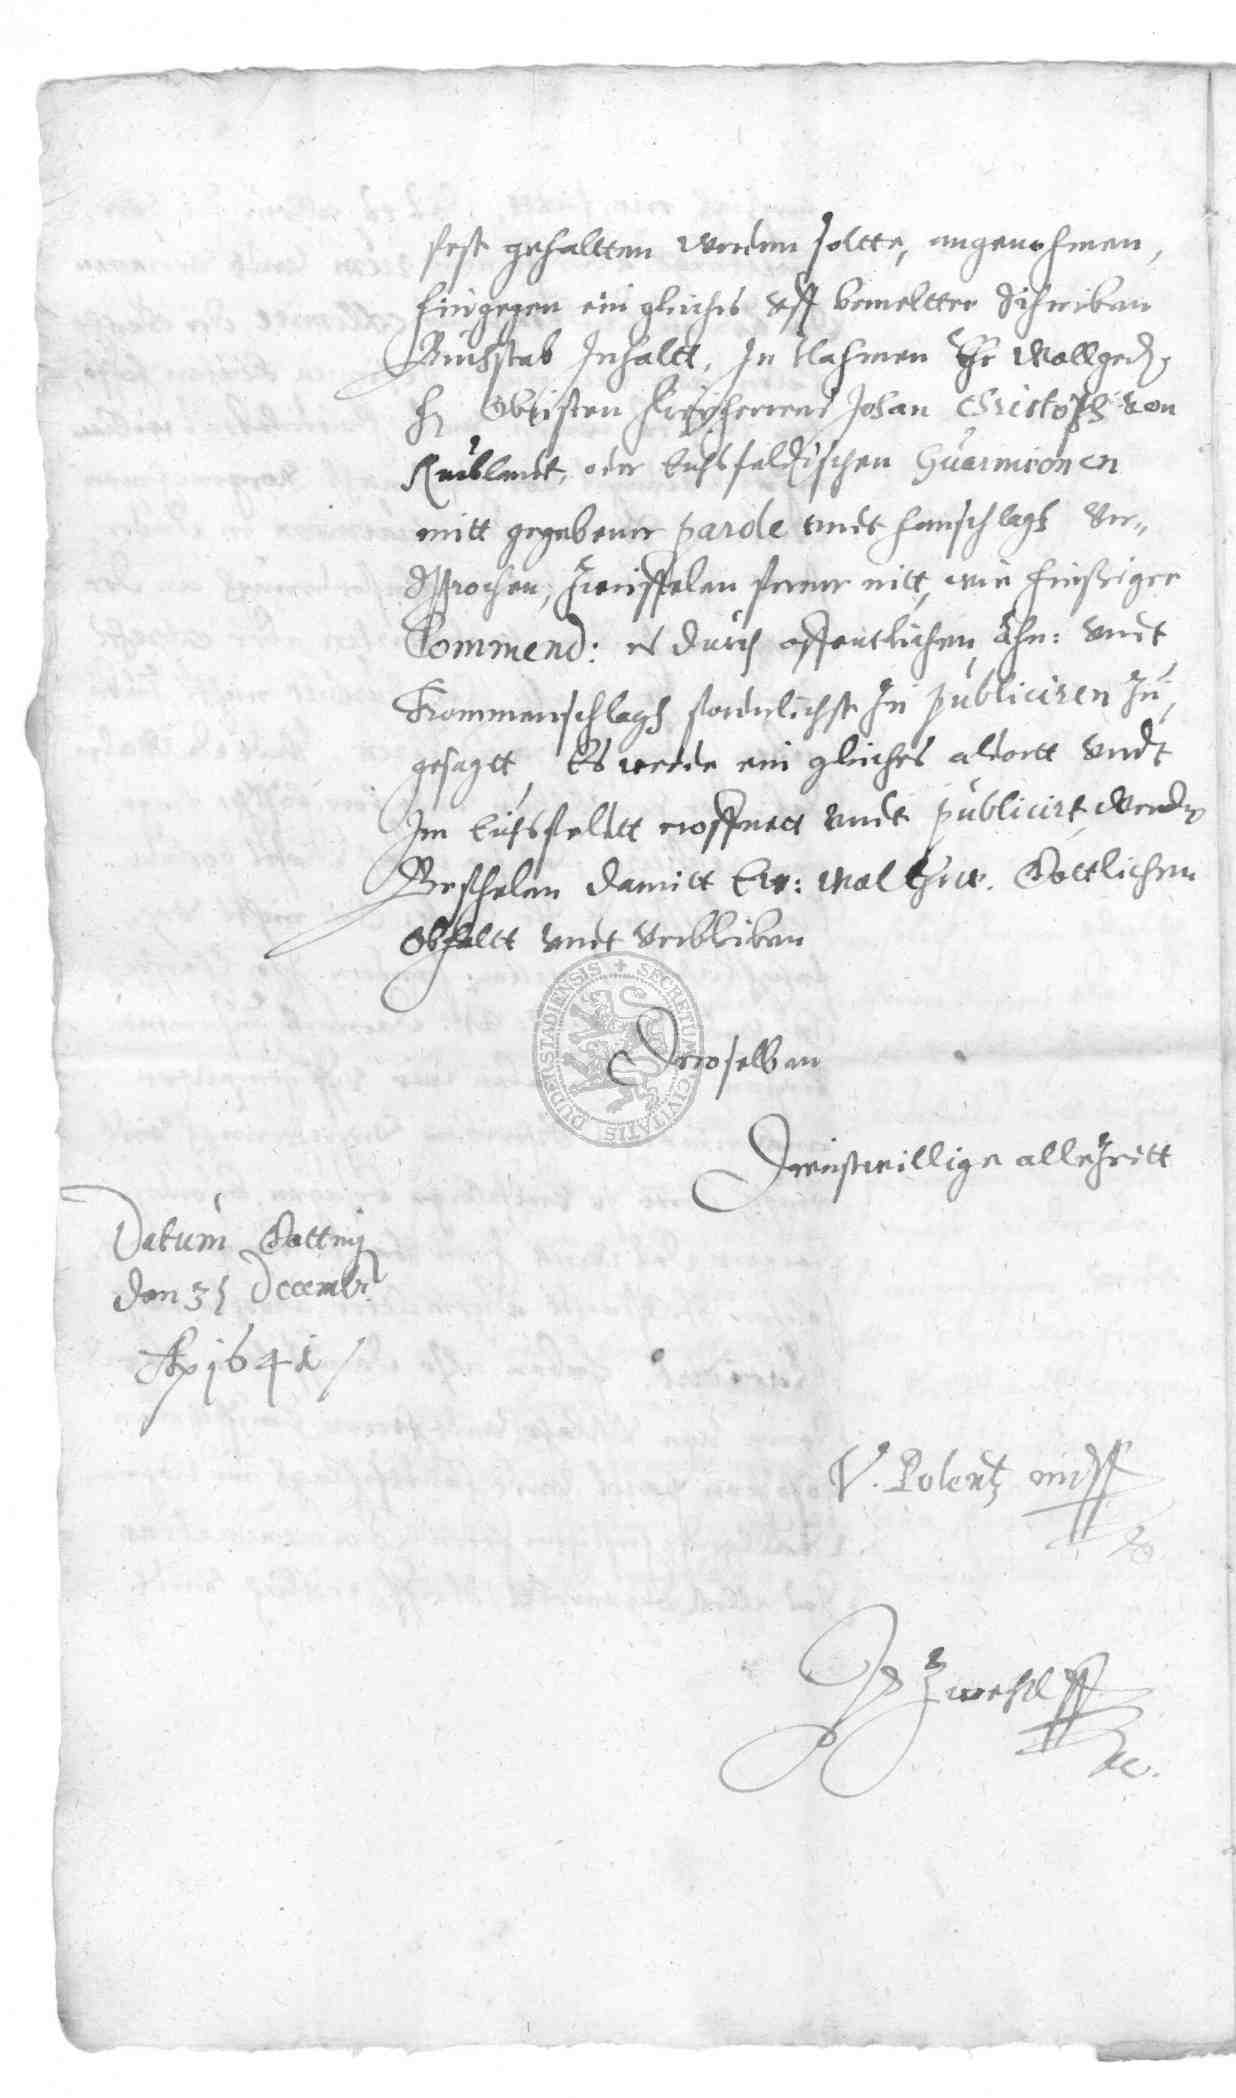 fest gehaltten werden soltte, angenohmen,
hingegen ein gleiches vff bemeltter Schreiben
Buchstab Inhaltt, In Nahmen Ihr Wollged.
H. Obristen Freyherrens Johan Christoph von
oder Eichsfeldischen Guarnisonen
mitt gegebener parole vndt handschlagh ver-
sprochen, Zweiffelen ferner nitt, wie hießiger
Commend: es durch offentlichen vndt
Trommenschlagh forderlichst zu publiciren zu-
gesagtt, Es werde ein gleiches aldortt vndt
Im Eichsfeldtt eroffnett vndt publicirt werden
Befehlen damitt Ew: Gottlichen
obhaltt vndt verbleiben
SECRETUM CIVITATIS DUDERSTADIENSIS
Deroselben
Dienstwillige alleZeitt
Datum Gotting
den 31 Decemb:
Ao 1641
V. Polentz mpp
Zwehl